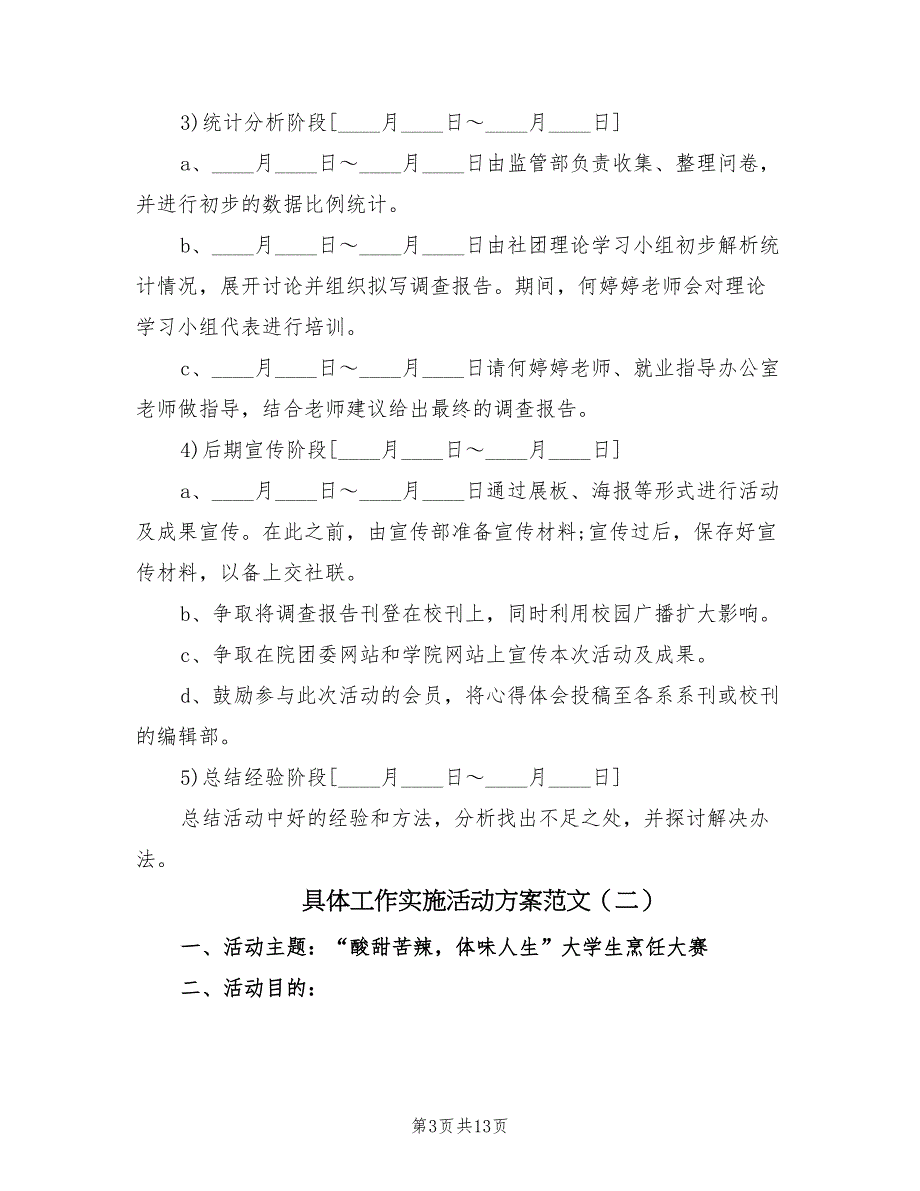 3)统计分析阶段[____月____日～____月____日]
a、____月____日～____月____日由监管部负责收集、整理问卷，
并进行初步的数据比例统计。
b、____月____日～____月____日由社团理论学习小组初步解析统
计情况，展开讨论并组织拟写调查报告。期间，何婷婷老师会对理论
学习小组代表进行培训。
c、____月____日～____月____日请何婷婷老师、就业指导办公室
老师做指导，结合老师建议给出最终的调查报告。
4)后期宣传阶段[____月____日～____月____日]
a、____月____日～____月____日通过展板、海报等形式进行活动
及成果宣传。在此之前，由宣传部准备宣传材料;宣传过后，保存好宣
传材料，以备上交社联。
b、争取将调查报告刊登在校刊上，同时利用校园广播扩大影响。
c、争取在院团委网站和学院网站上宣传本次活动及成果。
d、鼓励参与此次活动的会员，将心得体会投稿至各系系刊或校刊
的编辑部。
5)总结经验阶段[____月____日～____月____日]
总结活动中好的经验和方法，分析找出不足之处，并探讨解决办
法。
具体工作实施活动方案范文（二）
一、活动主题：“酸甜苦辣，体味人生”大学生烹饪大赛
二、活动目的：
第3页共13页